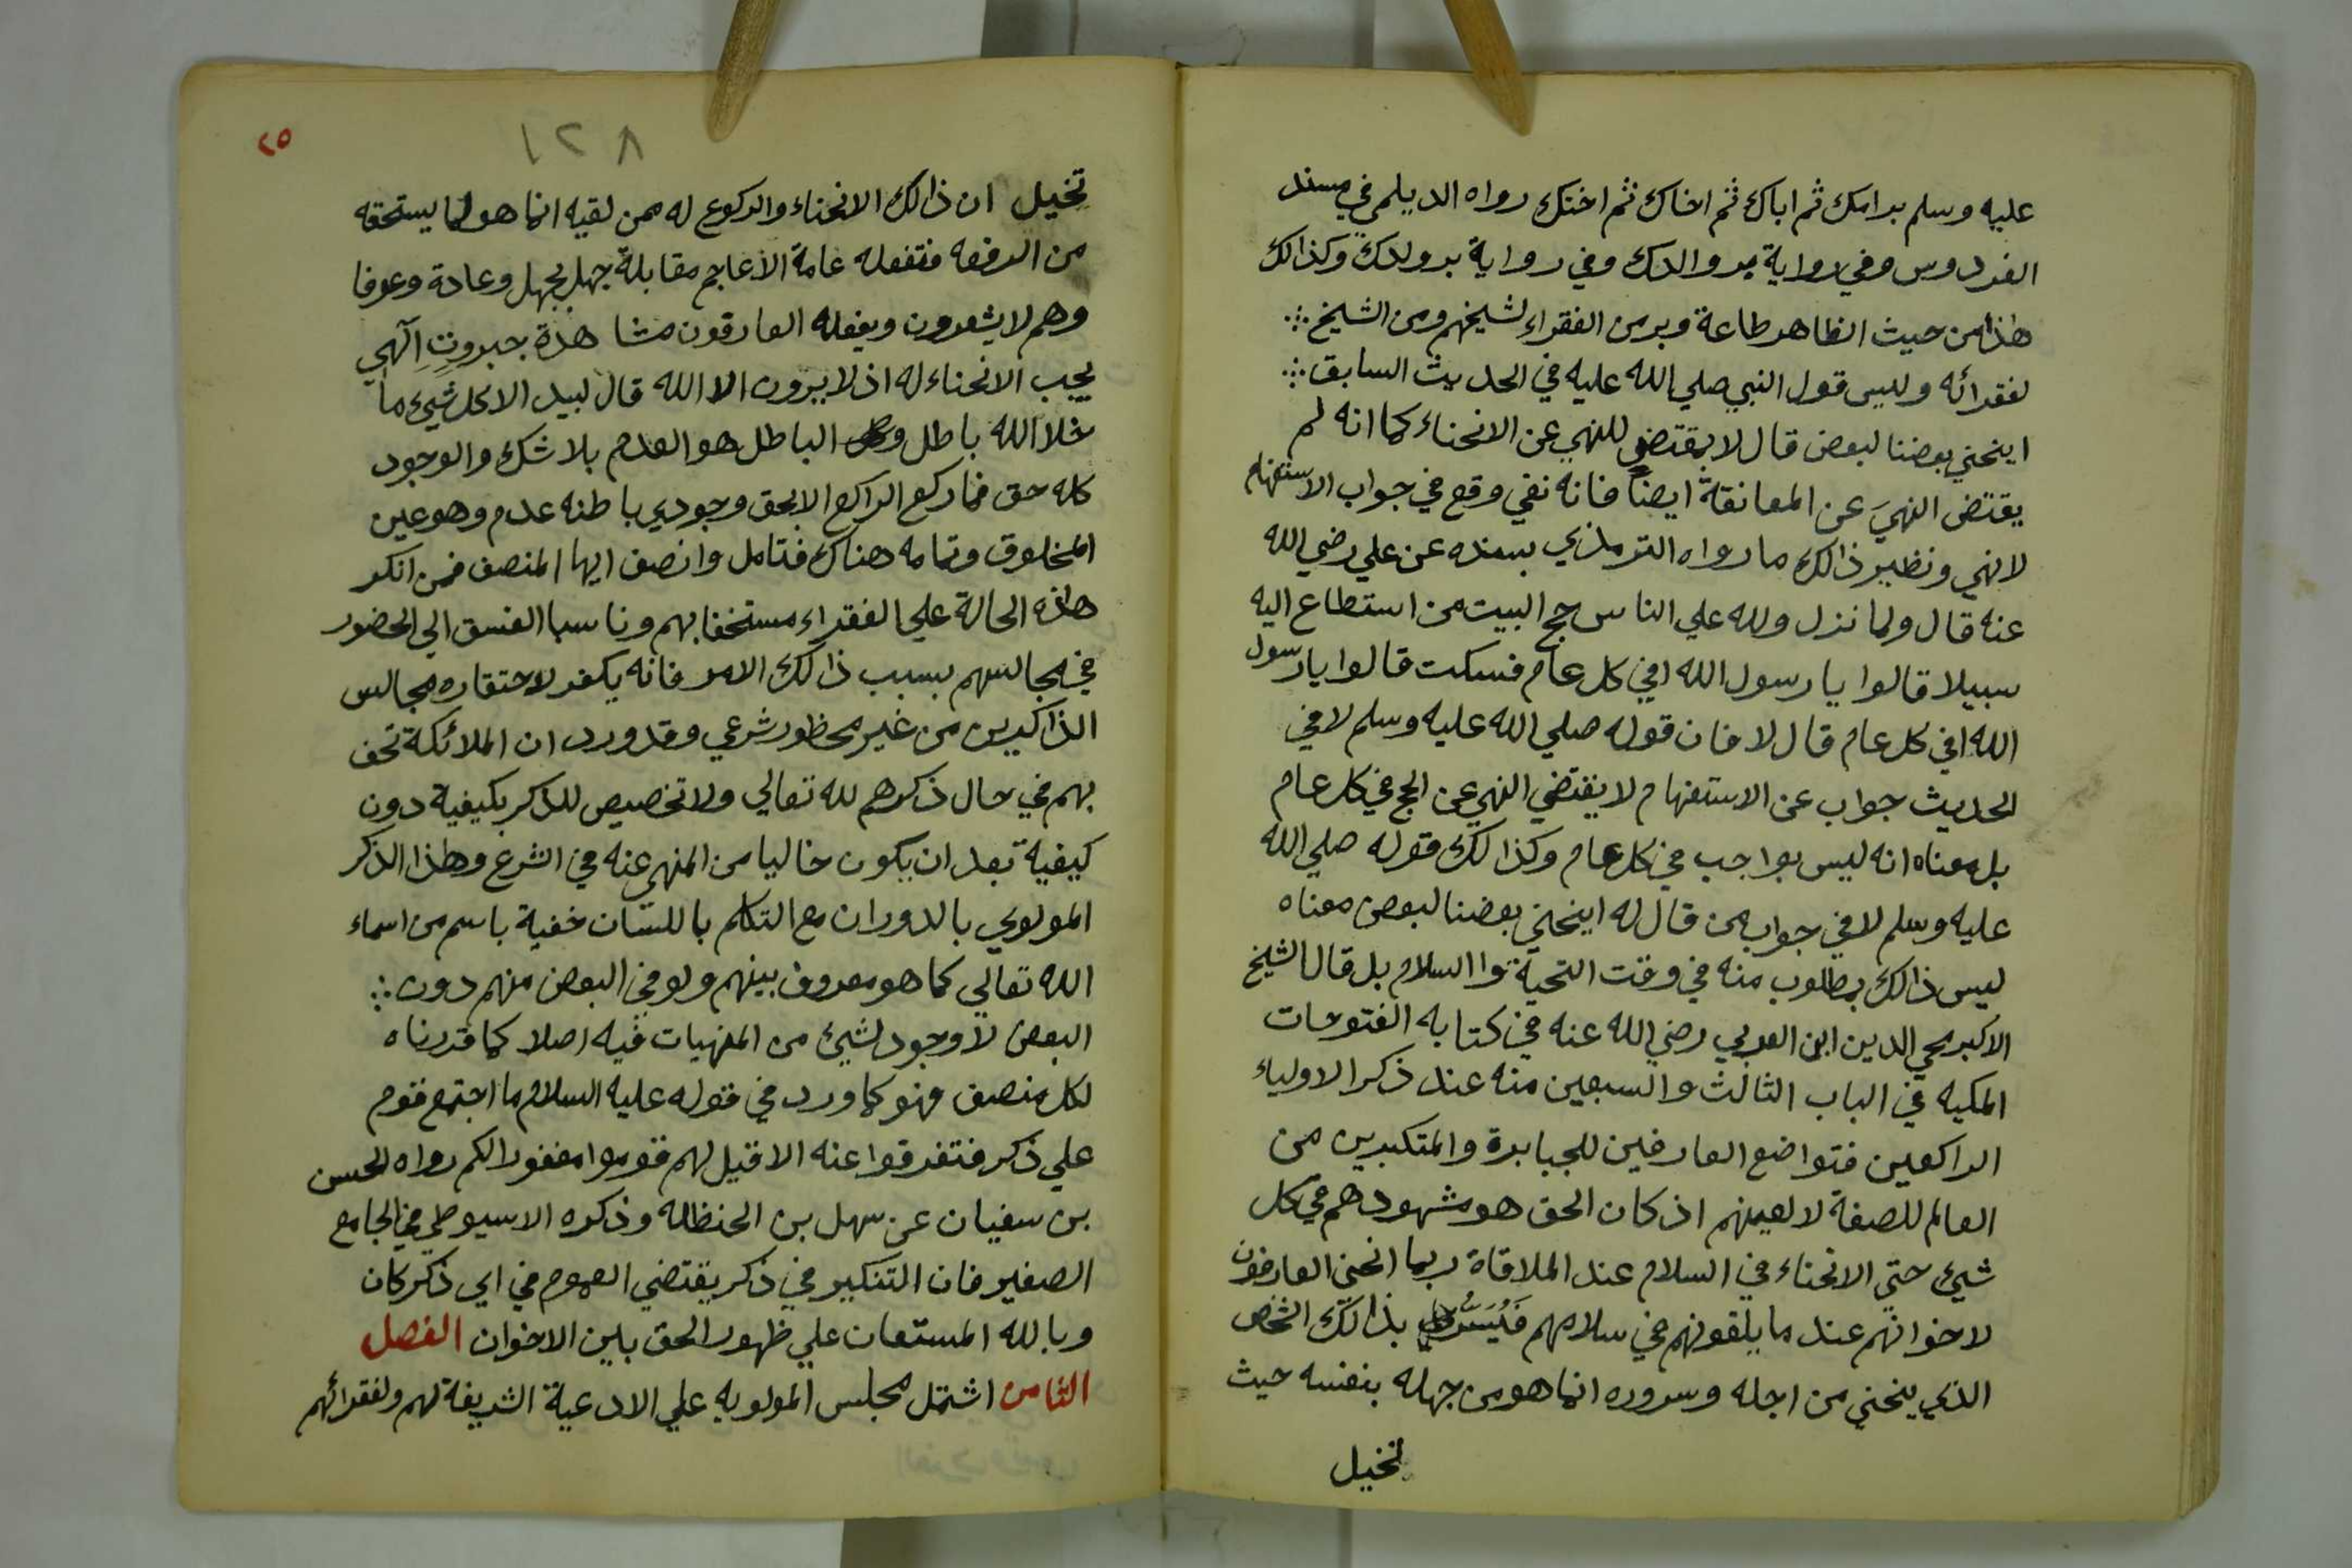 عليه وسلم بر امك ثم اباك ثم اخاك ثم اختك رواه الديلمي في مسند
الفردوس وفي رواية بر والدك وفي رواية بر ولدك وكذالك
هذا من حيث الظاهر طاعة وبر من الفقراء لشيخهم ومن الشيخ ∴
لفقرائه وليس قول النبي صلي الله عليه في الحديث السابق ∴
اينحني بعضنا لبعض قال لا بمقتضي للنهي عن الانحناء كما انه لم
يقتض النهيَ عن المعانقة ايضاً فانه نفي وقع في جواب الاستفهام
لانهي ونظير ذالك ما رواه الترمذي بسنده عن علي رضي الله
عنه قال ولما نزل ولله علي الناس حج البيت من استطاع اليه
سبيلا قالوا يا رسول الله افي كل عام فسكت قالوا يا رسول
الله افي كل عام قال لا فان قوله صلي الله عليه وسلم لا في
الحديث جواب عن الاستفهام لا يقتضي النهي عن الحج في كل عام
بل معناه انه ليس بواجب في كل عام وكذالك قوله صلي الله
عليه وسلم لا في جواب من قال له اينحني بعضنا لبعض معناه
ليس ذالك بمطلوب منه في وقت التحية والسلام بل قال الشيخ
الاكبر محي الدين ابن العربي رضي الله عنه في كتابه الفتوحات
المكيه في الباب الثالث والسبعين منه عند ذكر الاولياء
الراكعين فتواضع العارفين للجبابرة والمتكبرين من
العالم للصفة لا لعينهم اذ كان الحق هو مشهودهم في كل
شيئ حتي الانحناء في السلام عند الملاقاة ربما انحني العارفون
لاخوانهم عند ما يلقونهم في سلامهم فَيُسَرُّ بذالك الشخص
الذي ينحني من اجله وسروره انما هو من جهله بنفسه حيث
تخيل
٢٥
١٢٨
تخيل ان ذالك الانحناء والركوع له ممن لقيه انما هو لما يستحقه
من الرفعه فتفعله عامة الاعاجم مقابلة جهل بجهل وعادة وعرفا
وهم لا يشعرون ويفعله العارفون مشاهدة جبروتٍ الٓهي
يجب الانحناء له اذ لا يرون الا الله قال لبيد الا كل شيئ ما
خلا الله باطل و الباطل هو العدم بلا شك والوجود
كله حق فما ركع الراكع الا لحق وجودي باطنه عدم وهو عين
المخلوق وتمامه هناك فتامل وانصف ايها المنصف فمن انكر
هذه الحالة علي الفقراء مستخفا بهم وناسبا الفسق الي الحضور
في مجالسهم بسبب ذالك الامر فانه يكفر لاحتقاره مجالس
الذاكرين من غير محظور شرعي وقد ورد ان الملائكة تحف
بهم في حال ذكرهم لله تعالي ولا تخصيص للذكر بكيفية دون
كيفية بعد ان يكون خاليا من المنهي عنه في الشرع وهذا الذكر
المولوي بالدوران مع التكلم باللسان خفية باسم من اسماء
الله تعالي كما هو معروف بينهم ولو في البعض منهم دون ∴
البعض لا وجود لشيئ من المنهيات فيه اصلا كما قررناه
لكل منصف فهو كما ورد في قوله عليه السلام ما اجتمع قوم
علي ذكر فتفرقوا عنه الا قيل لهم قوموا مغفورا لكم رواه الحسن
بن سفيان عن سهل بن الحنظله وذكره الاسيوطي في الجامع
الصغير فان التنكير في ذكر يقتضي العموم في اي ذكر كان
وبالله المستعان علي ظهور الحق بين الاخوان الفصل
الثامن اشتمل مجلس المولويه علي الادعية الشريفة لهم ولفقرائهم